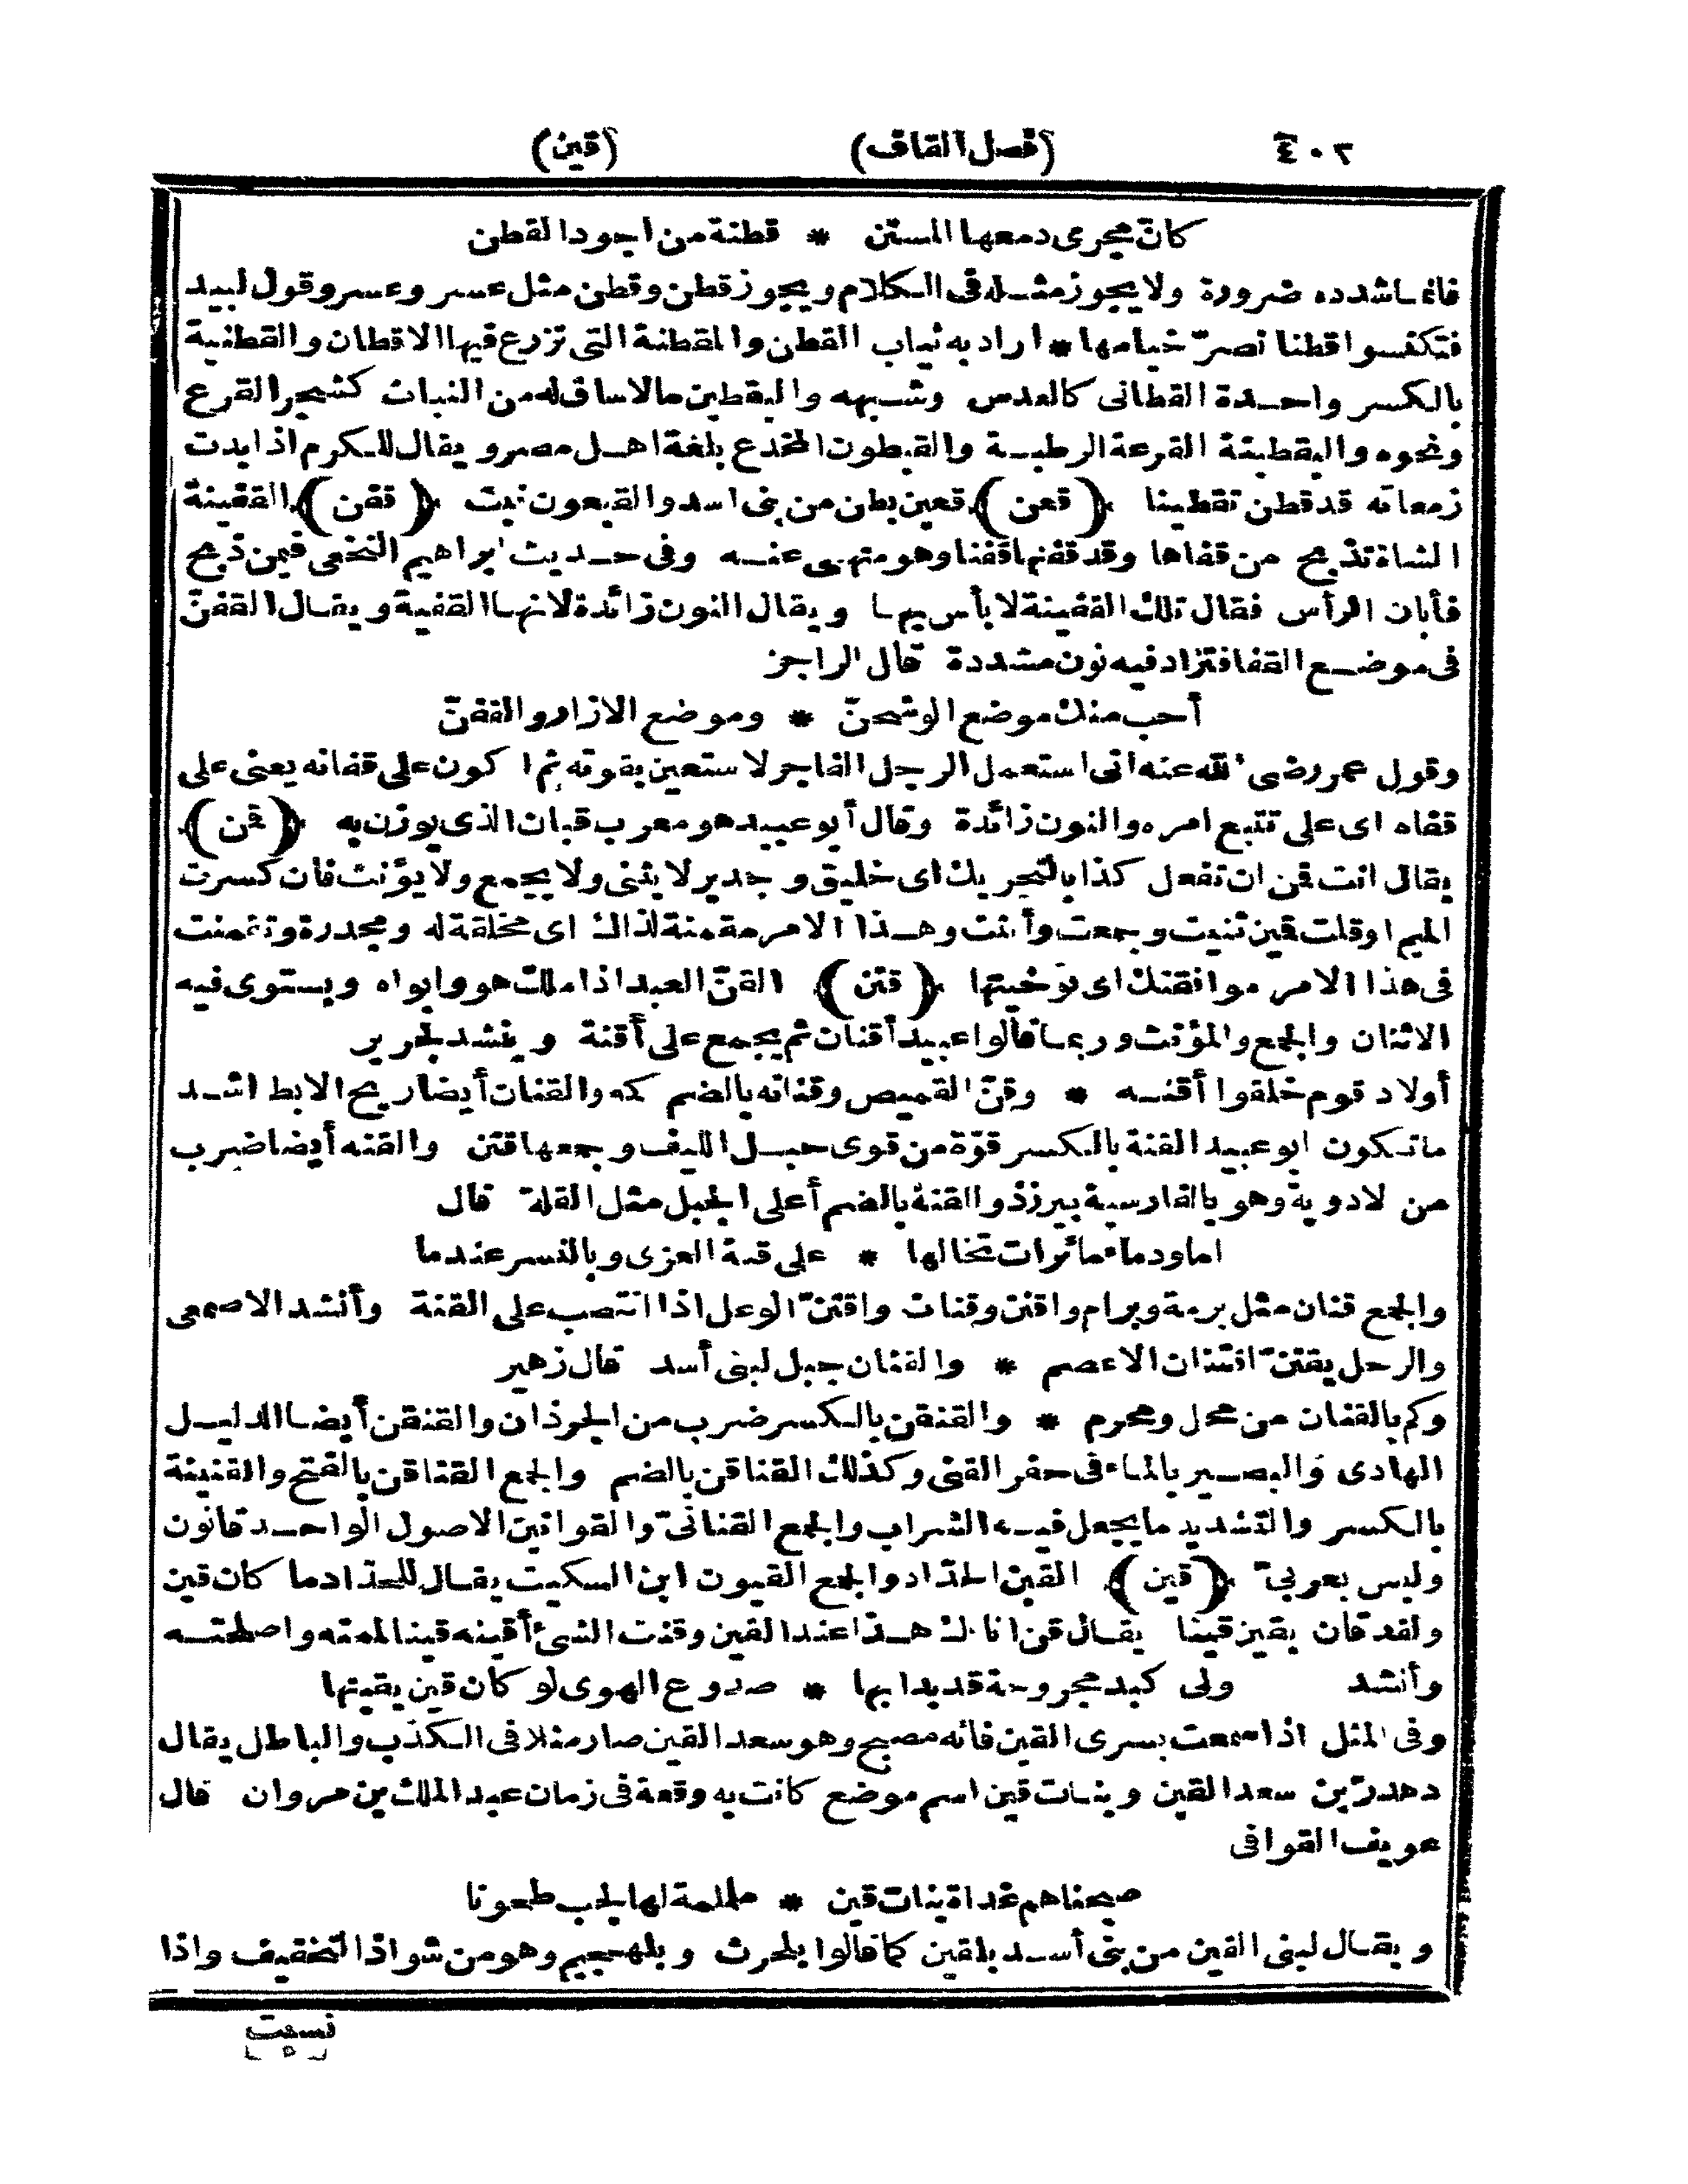 ٤٠٢ (فصل القاف) (قين)
كانّ مجرى دمعها المستن * قطنة من اجود القطن
فانما شدده ضرورة ولا يجوز مثله فى الكلام ويجوز قطن وقطن مثل عسر وعسر وقول لبيد
فتكنسوا قطنا تصرّ خيامها * اراد به ثياب القطن والمقطنة التى تزرع فيها الاقطان والقطنية
بالكسر واحدة القطانى كالعدس وشبهه واليقطين ما لا ساق له من النبات كشجر القرع
ونحوه واليقطينة القرعة الرطبة والقيطون المخدع بلغة اهل مصر ويقال للكرم اذا بدت
زمعاته قد قطن تقطينا ﴿ قعن ﴾ قعين بطن من بنى اسد والقيعون نبت ﴿ قفن ﴾ القفينة
الشاة تذبح من قفاها وقد قفنها قفنا وهو منهى عنه وفى حديث ابراهيم النخعى فيمن ذبح
فأبان الرأس فقال تلك القفينة لا بأس بها ويقال النون زائدة لانها القفية ويقال القفنّ
فى موضع القفا فتزاد فيه نون مشددة قال الراجز
أحب منك موضع الوشحنّ * وموضع الازار والقفنّ
وقول عمر رضى الله عنه انى استعمل الرجل الفاجر لاستعين بقوته ثم اكون على قفانه يعنى على
قفاه اى على تتبع امره والنون زائدة وقال أبو عبيد هو معرب قبان الذى يوزن به ﴿ قمن ﴾
يقال انت قمن ان تفعل كذا بالتحريك اى خليق وجدير لا يثنى ولا يجمع ولا يؤنث فان كسرت
الميم او قلت قمين ثنيت وجمعت وأنثت وهذا الامر مقمنة لذاك اى مخلقة له ومجدرة وتقمنت
فى هذا الامر موافقتك اى توخيتها ﴿ قنن ﴾ القنّ العبد اذا ملك هو وابواه ويستوى فيه
الاثنان والجمع والمؤنث وربما قالوا عبيد أقنان ثم يجمع على أقنة وينشد لجرير
أولاد قوم خلقوا أقنه * وقنّ القميص وقنانه بالضم كمه والقنان أيضا ريح الابط اشد
ما تكون ابو عبيد القنة بالكسر قوّة من قوى حبل الليف وجمعها قنن والقنه أيضا ضرب
من لادوية وهو بالفارسية بيرزذ والقنة بالضم أعلى الجبل مثل القلة قال
اما ودماء مائرات تخالها * على قنة العزى وبالنسر عندما
والجمع قنان مثل برمة وبرام واقنن وقنات واقتنّ الوعل اذا انتصب على القنة وأنشد الاصمعى
والرحل يقتنّ اقتنان الاعصم * والقنان جبل لبنى أسد قال زهير
وكم بالقنان من محل ومحرم * والقنقن بالكسر ضرب من الجرذان والقنقن أيضا الدليل
الهادى والبصير بالماء فى حفر القنى وكذلك القناقن بالضم والجمع القناقن بالفتح والقنينة
بالكسر والتشديد ما يجعل فيه الشراب والجمع القنانىّ والقوانين الاصول الواحد قانون
وليس بعربىّ ﴿ قين ﴾ القين الحدّاد والجمع القيون ابن السكيت يقال للحدّاد ما كان قين
ولقد قان يقين قينا يقال قن اناءك هذا عند القين وقنت الشئ أقينه قينا لممته واصلحته
وأنشد ولى كبد مجروحة قد بدا بها * صدوع الهوى لو كان قين يقينها
وفى المثل اذا سمعت بسرى القين فانه مصبح وهو سعد القين صار مثلا فى الكذب والباطل يقال
دهدرّين سعد القين وبنات قين اسم موضع كانت به وقعة فى زمان عبد الملك بن مروان قال
عويف القوافى
صبحناهم غداة بنات قين * ململمة لها لجب طحونا
ويقال لبنى القين من بنى أسد بلقين كما قالوا بلحرث وبلهجيم وهو من شواذ التخفيف واذا
نسبت